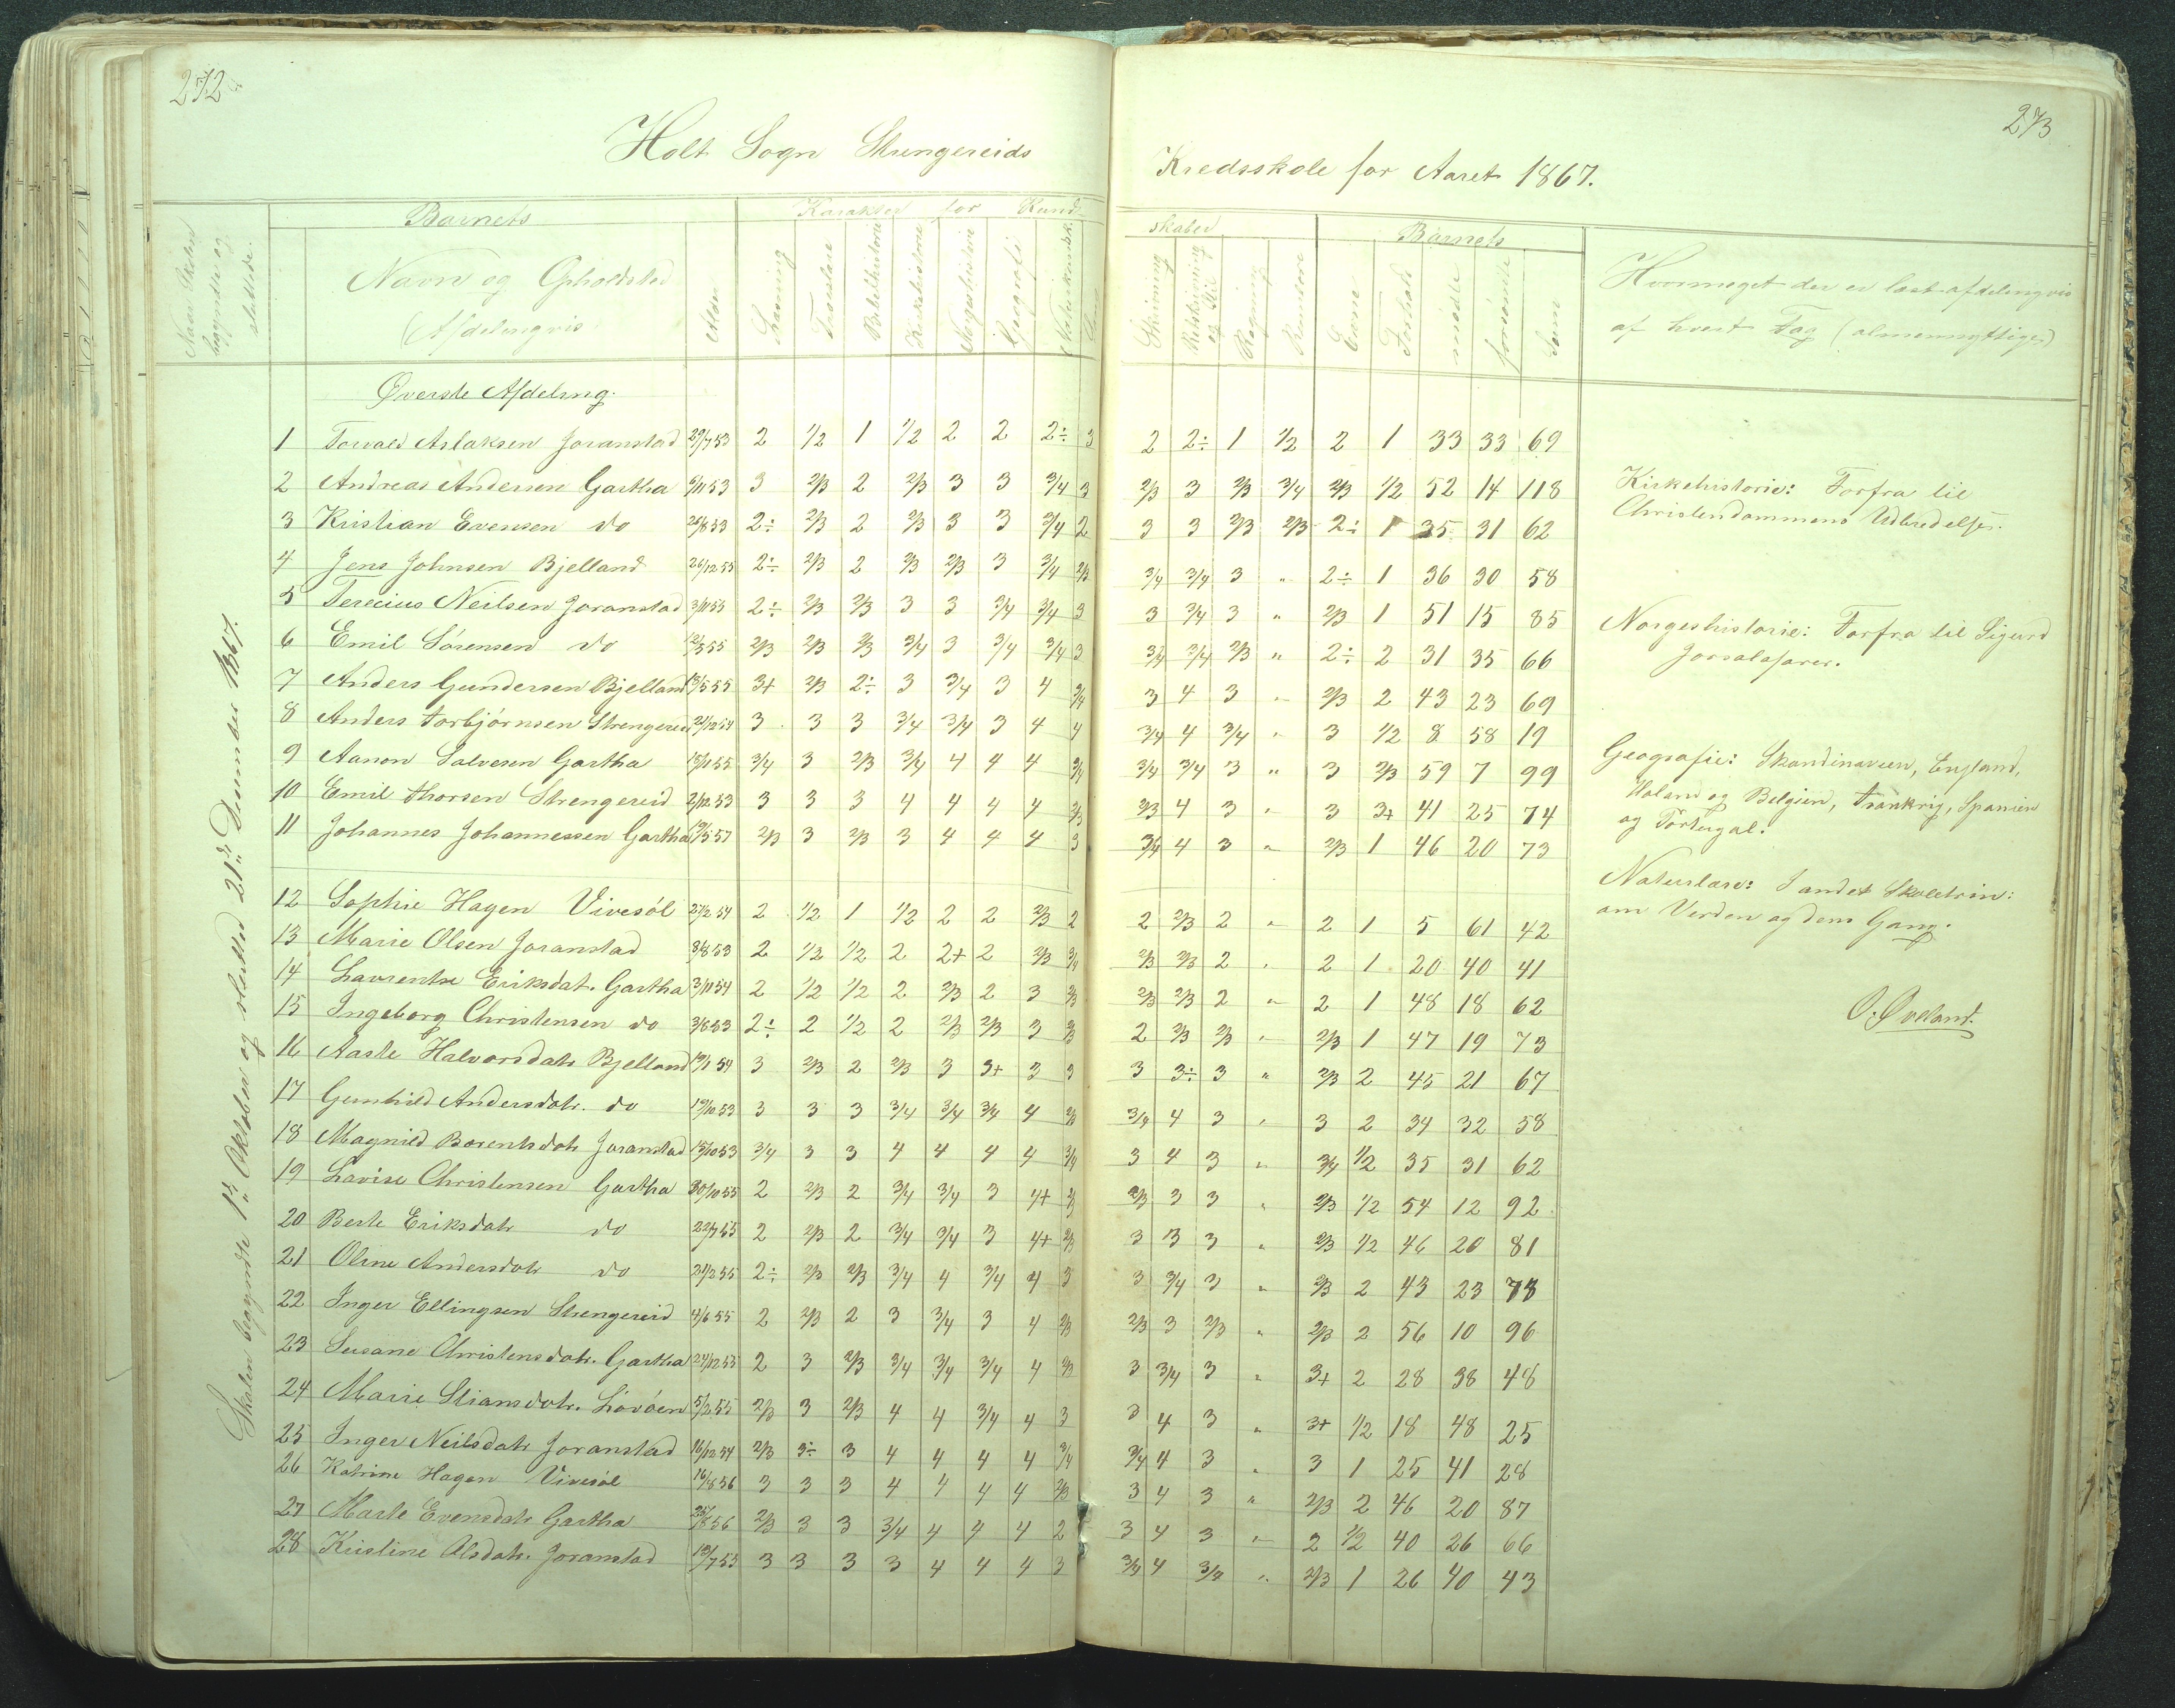 272
273
Holt Sogn Strengereids Kredsskole for Aaret 1867.
Naar Skolen begyndte og sluttede.
Barnets
Karakter for Kundskaber
Barnets
Navn og Opholdsted
(Afdelingvis
Alder
Læsning
Troeslære
Bibelhistorie
Kirkehistorie
Norgeshistorie
Geografi
Naturkundsk.
Sang
Skrivning
Retskrivning og Stil
Regning
Evne
Forhold
mødte
forsømte
Sum
Hvormeget der er læst afdelingvis
af hvert Fag (almennyttige)
Skolen begyndte 1ste Oktober og sluttede 21de December 1867.
Øverste Afdeling.
1 Torvald Aslaksen Joranstad 29/7 53 2 1/2 1 1/2 2 2 2÷ 3 2 2÷ 1 1/2 2 1 33 33 69
2 Andreas Andersen Gartha 6/11 53 3 2/3 2 2/3 3 3 3/4 3 2/3 3 2/3 3/4 2/3 1/2 52 14 118
3 Kristian Evensen do 26/8 53 2÷ 2/3 2 2/3 3 3 3/4 2 3 3 2/3 2/3 2÷ 1 35 31 62
4 Jens Johnsen Bjelland 26/12 55 2÷ 2/3 2 2/3 2/3 3 3/4 2/3 3/4 3/4 3 " 2÷ 1 36 30 58
5 Terecius Neilsen Joranstad 3/11 55 2÷ 2/3 2/3 3 3 3/4 3/4 3 3 3/4 3 " 2/3 1 51 15 85
6 Emil Sørensen do 12/3 55 2/3 2/3 2/3 3/4 3 3/4 3/4 3 3/4 3/4 2/3 " 2÷ 2 31 35 66
7 Anders Gundersen Bjelland 13/5 55 3+ 2/3 2÷ 3 3/4 3 4 3/4 3 4 3 " 2/3 2 43 23 69
8 Anders Torbjørnsen Strengereid 21/12 54 3 3 3 3/4 3/4 3 4 4 3/4 4 3/4 " 3 1/2 8 58 19
9 Aanon Salvesen Gartha 15/1 55 3/4 3 2/3 3/4 4 4 4 3/4 3/4 3/4 3 " 3 2/3 59 7 99
10 Emil Thorsen Strengereid 2/12 53 3 3 3 4 4 4 4 2/3 2/3 4 3 " 3 3+ 41 25 74
11 Johannes Johannessen Gartha 19/5 57 2/3 3 2/3 3 4 4 4 3 3/4 4 3 " 2/3 1 46 20 73
12 Sophie Hagen Vivesøl 27/2 54 2 1/2 1 1/2 2 2 2/3 2 2 2/3 2 " 2 1 5 61 42
13 Marie Olsen Joranstad 3/8 53 2 1/2 1/2 2 2+ 2 2/3 3/4 2/3 2/3 2 " 2 1 20 40 41
14 Lavrentse Eriksdat. Gartha 3/11 54 2 1/2 1/2 2 2/3 2 3 2/3 2/3 2/3 2 " 2 1 48 18 62
15 Ingeborg Christensen do 3/8 53 2÷ 2 1/2 2 2/3 2/3 3 2/3 2 2/3 2/3 " 2/3 1 47 19 73
16 Aaste Halvorsdatr Bjelland 19/1 54 3 2/3 2 2/3 3 3+ 3 3 3 3÷ 3 " 2/3 2 45 21 67
17 Gunhild Andersdatr. do 19/10 53 3 3 3 3/4 3/4 3/4 4 2/3 3/4 4 3 " 3 2 34 32 58
18 Magnild Borentsdatr Joranstad 15/10 53 3/4 3 3 4 4 4 4 3/4 3 4 3 " 3/4 1/2 35 31 62
19 Lavise Christensen Gartha 30/10 55 2 2/3 2 3/4 3/4 3 4+ 2/3 2/3 3 3 " 2/3 1/2 54 12 92
20 Berte Eriksdatr do 22/7 55 2 2/3 2 3/4 3/4 3 4+ 2/3 3 3 3 " 2/3 1/2 46 20 81
21 Oline Andersdatr do 21/2 55 2÷ 2/3 2/3 3/4 4 3/4 4 3 3 3/4 3 " 2/3 2 43 23 78
22 Inger Ellingsen Strengereid 4/6 55 2 2/3 2 3 3/4 3 4 2/3 2/3 3 2/3 " 2/3 2 56 10 96
23 Susane Christensdatr. Gartha 24/12 55 2 3 2/3 3/4 3/4 3/4 4 2/3 3 3/4 3 " 3+ 2 28 38 48
24 Marie Stiansdatr. Løvøen 5/2 55 2/3 3 2/3 4 4 3/4 4 3 3 4 3 " 3+ 1/2 18 48 25
25 Inger Neilsdatr Joranstad 16/12 54 2/3 3÷ 3 4 4 4 4 3/4 3/4 4 3 " 3 1 25 41 28
26 Katrine Hagen Vivesøl 16/8 56 3 3 3 4 4 4 4 2/3 3 4 3 " 2/3 2 46 20 87
27 Marte Evensdatr Gartha 25/8 56 2/3 3 3 3/4 4 4 4 2 3 4 3 " 2 1/2 40 26 66
28 Kristine Olsdatr. Joranstad 13/7 53 3 3 3 3 4 4 4 3 3/4 4 3/4 " 2/3 1 26 40 43
Kirkehistorie: Forfra til
Christendommens Udbredelse.
Norgeshistorie: Forfra til Sigurd
Jorsalafarer.
Geografie: Skandinavien, England,
Holand og Belgien, Frankrig, Spanien
og Portugal.
Naturlære: I andet Skoletrin:
om Verden og dens Gang.
O. Øveland.